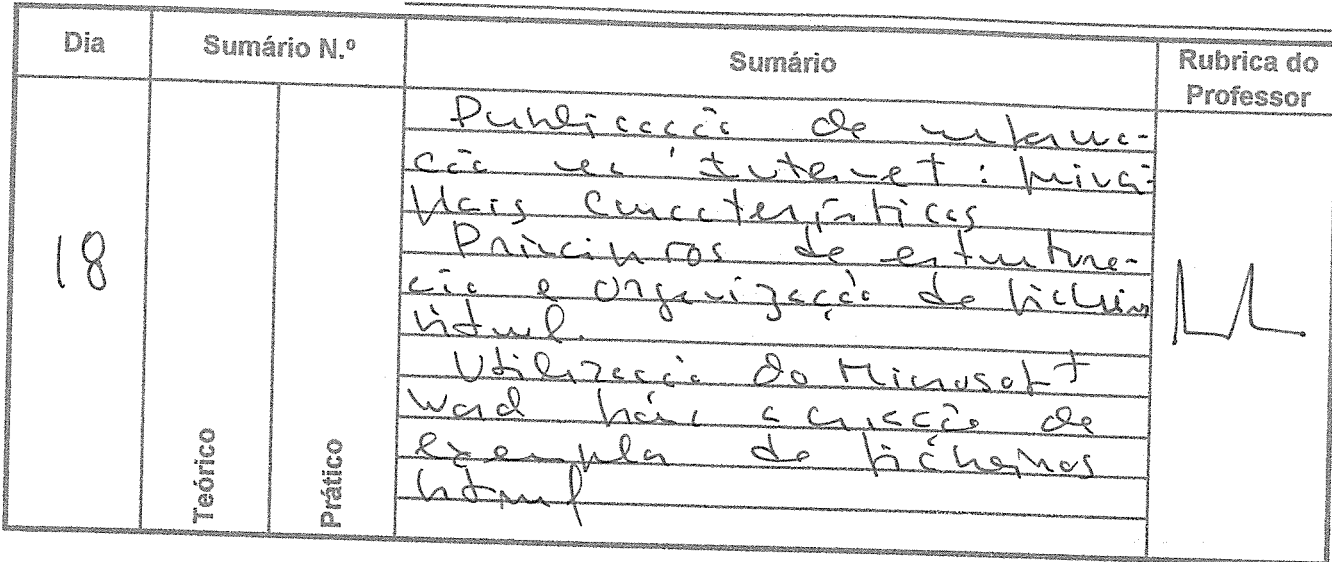 Dia Sumário N.º Sumário Rubrica do Professor
18
Teórico
Prático
Publicação de informa-
ção na Internet: princi-
pais características
Princípios de estrutura-
ção e organização de ficheiros
html.
Utilização do Microsoft
Word para a criação de
exemplos de ficheiros
html